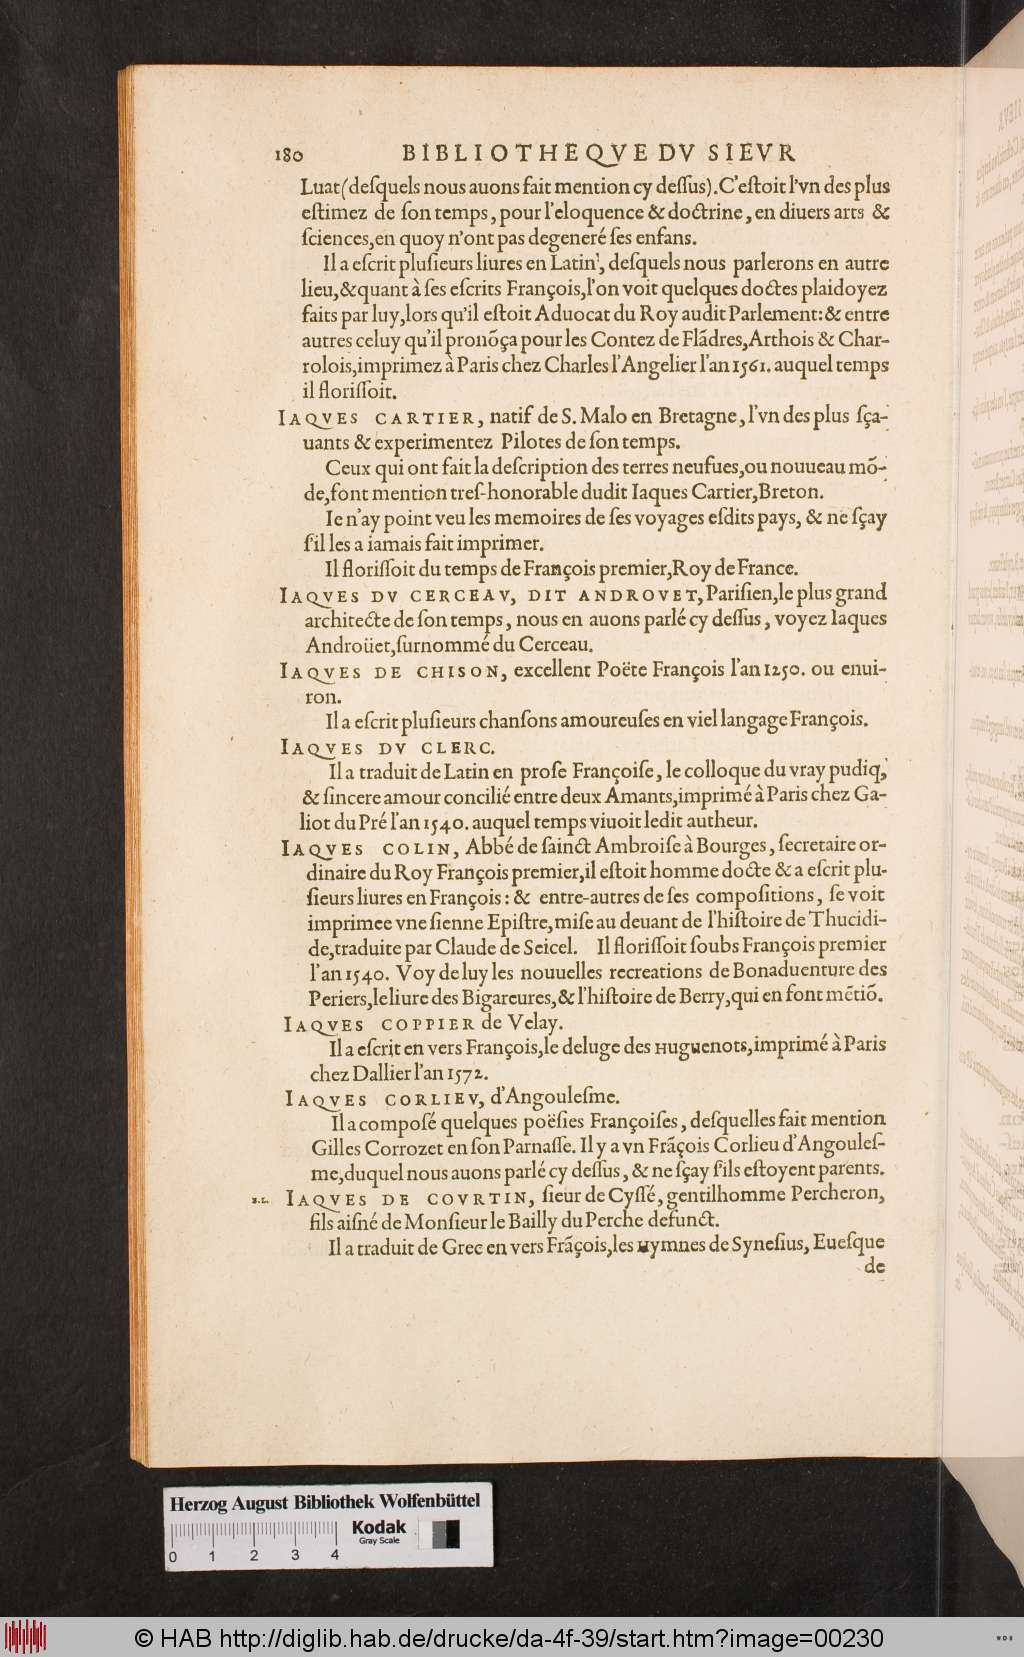 180 BIBLIOTHEQVE DV SIEVR
Luat (deſquels nous auons fait mention cy deſſus). C'eſtoit l'vn des plus
eſtimez de ſon temps, pour l'eloquence & doctrine, en diuers arts &
ſciences, en quoy n'ont pas degeneré ſes enfans.
Il a eſcrit pluſieurs liures en Latin, deſquels nous parlerons en autre
lieu, & quant à ſes eſcrits François, l'on voit quelques doctes plaidoyez
faits par luy, lors qu'il eſtoit Aduocat du Roy audit Parlement: & entre
autres celuy qu'il pronõça pour les Contez de Flãdres, Arthois & Char-
rolois, imprimez à Paris chez Charles l'Angelier l'an 1561. auquel temps
il floriſſoit.
IAQVES CARTIER, natif de S. Malo en Bretagne, l'vn des plus ſça-
uants & experimentez Pilotes de ſon temps.
Ceux qui ont fait la deſcription des terres neufues, ou nouueau mõ-
de, font mention treſ-honorable dudit Iaques Cartier, Breton.
Ie n'ay point veu les memoires de ſes voyages eſdits pays, & ne ſçay
ſ'il les a iamais fait imprimer.
Il floriſſoit du temps de François premier, Roy de France.
IAQVES DV CERCEAV, DIT ANDROVET, Pariſien, le plus grand
architecte de ſon temps, nous en auons parlé cy deſſus, voyez Iaques
Androüet, ſurnommé du Cerceau.
IAQVES DE CHISON, excellent Poëte François l'an 1250. ou enui-
ron.
Il a eſcrit pluſieurs chanſons amoureuſes en viel langage François.
IAQVES DV CLERC.
Il a traduit de Latin en proſe Françoiſe, le colloque du vray pudiq,
& ſincere amour concilié entre deux Amants, imprimé à Paris chez Ga-
liot du Pré l'an 1540. auquel temps viuoit ledit autheur.
IAQVES COLIN, Abbé de ſainct Ambroiſe à Bourges, ſecretaire or-
dinaire du Roy François premier, il eſtoit homme docte & a eſcrit plu-
ſieurs liures en François: & entre-autres de ſes compoſitions, ſe voit
imprimee vne ſienne Epiſtre, miſe au deuant de l'hiſtoire de Thucidi-
de, traduite par Claude de Seicel. Il floriſſoit ſoubs François premier
l'an 1540. Voy de luy les nouuelles recreations de Bonaduenture des
Periers, le liure des Bigareures, & l'hiſtoire de Berry, qui en font mẽtiõ.
IAQVES COPPIER de Velay.
Il a eſcrit en vers François, le deluge des Huguenots, imprimé à Paris
chez Dallier l'an 1572.
IAQVES CORLIEV, d'Angouleſme.
Il a compoſé quelques poëſies Françoiſes, deſquelles fait mention
Gilles Corrozet en ſon Parnaſſe. Il y a vn Frãçois Corlieu d'Angouleſ-
me, duquel nous auons parlé cy deſſus, & ne ſçay ſ'ils eſtoyent parents.
IAQVES DE COVRTIN, ſieur de Cyſſé, gentilhomme Percheron,
fils aiſné de Monſieur le Bailly du Perche defunct.
Il a traduit de Grec en vers Frãçois, les Hymnes de Syneſius, Eueſque
de
Herzog August Bibliothek Wolfenbüttel
Kodak
Gray Scale
0 1 2 3 4
© HAB http://diglib.hab.de/drucke/da-4f-39/start.htm?image=00230